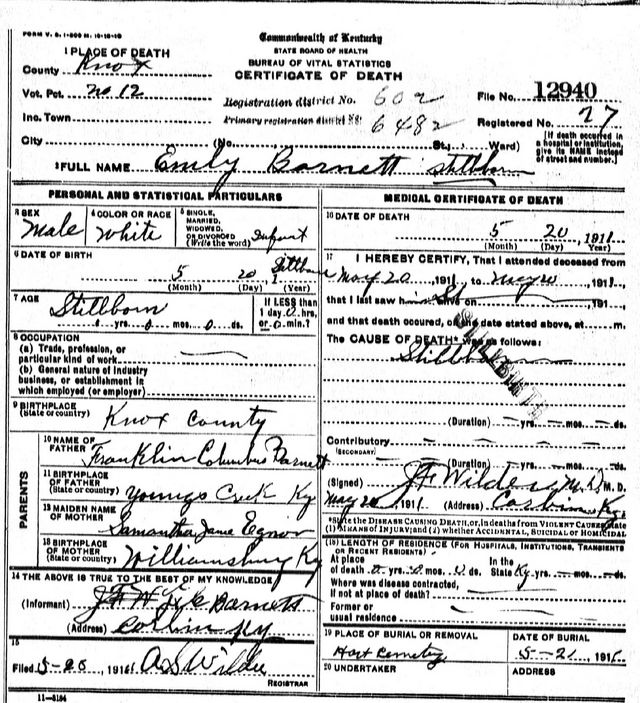 FORM V. S. 1-500 M. 10-12-10
Commonwealth of Kentucky
STATE BOARD OF HEALTH
BUREAU OF VITAL STATISTICS
CERTIFICATE OF DEATH
1 PLACE OF DEATH
County Knox
Vot. Pct. No 12
Registration district No. 602
File No. 12940
Inc. Town
Primary registration district No. 6482
Registered No. 27
City (No. St.; Ward)
[If death occurred in a hospital or institution, give its NAME instead of street and number.]
2 FULL NAME Emily Barnett Stillborn
PERSONAL AND STATISTICAL PARTICULARS
3 SEX Male
4 COLOR OR RACE White
5 SINGLE, MARRIED, WIDOWED, OR DIVORCED (Write the word) Infant
6 DATE OF BIRTH
5 20 Stillborn 1
(Month) (Day) (Year)
7 AGE Stillborn
0 yrs. 0 mos. 0 ds.
If LESS than 1 day, 0 hrs, or 0 min.?
8 OCCUPATION
(a) Trade, profession, or particular kind of work
(b) General nature of industry business, or establishment in which employed (or employer)
9 BIRTHPLACE (State or country) Knox County
PARENTS
10 NAME OF FATHER Franklin Columbus Barnett
11 BIRTHPLACE OF FATHER (State or country) Youngs Creek Ky
12 MAIDEN NAME OF MOTHER Samantha Jane
13 BIRTHPLACE OF MOTHER (State or country) Williamsburg Ky
14 THE ABOVE IS TRUE TO THE BEST OF MY KNOWLEDGE
(Informant) Barnett
(Address) Corbin Ky
15
Filed 5-25 1911 A S Wilder
REGISTRAR
11-5184
MEDICAL CERTIFICATE OF DEATH
16 DATE OF DEATH
5 20, 1911
(Month) (Day) (Year)
17 I HEREBY CERTIFY, That I attended deceased from
May 20 1911, to 1911,
that I last saw h alive on 191,
and that death occured, on the date stated above, at m.
The CAUSE OF DEATH* was as follows:
Stillborn
STILLBIRTH
(Duration) yrs. mos. ds.
Contributory
(SECONDARY)
(Duration) yrs. mos. ds.
(Signed) Wilder M.D. M. D.
May 20, 1911 (Address) Corbin Ky
*State the DISEASE CAUSING DEATH, or, in deaths from VIOLENT CAUSES, state
(1) MEANS OF INJURY; and (2) whether ACCIDENTAL, SUICIDAL or HOMICIDAL
18 LENGTH OF RESIDENCE (FOR HOSPITALS, INSTITUTIONS, TRANSIENTS OR RECENT RESIDENTS)
At place of death 0 yrs. 0 mos. 0 ds. In the State Ky yrs. mos. ds.
Where was disease contracted, if not at place of death?
Former or usual residence
19 PLACE OF BURIAL OR REMOVAL
Hart Cemetery
DATE OF BURIAL
5-21, 1911
20 UNDERTAKER
ADDRESS